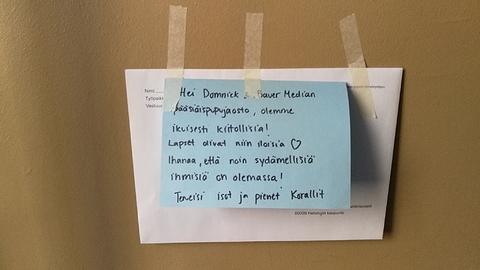 Nimi
Hei Domnick & Bauer Median
pääsiäispupujaosto, olemme
ikuisesti kiitollisia!
Lapset olivat niin iloisia ♡
Ihanaa, että noin sydämellisiä
ihmisiä on olemassa!
Terveisi isot ja pienet Korallit
©2009 Helsingin kaupunki